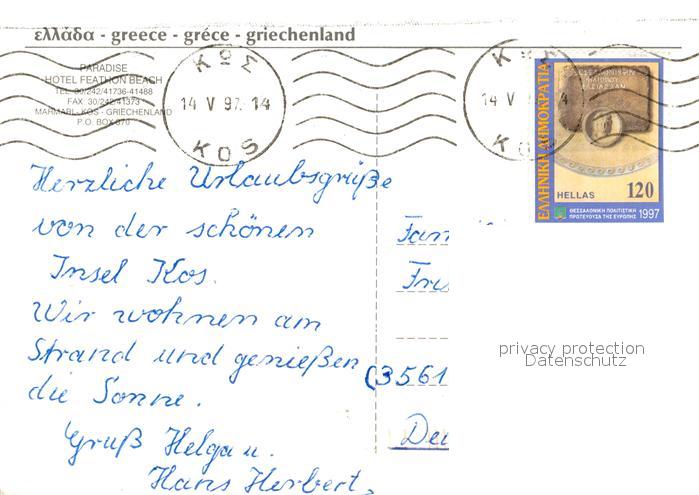 ελλάδα - greece - gréce - griechenland
PARADISE
HOTEL FEATHON BEACH
TEL. 30/242/41736-41488
FAX: 30/242/41373
MARMARI - KOS - GRIECHENLAND
P.O. BOX 870
ΚΩΣ
14 V 97. 14
KOS
ΚΩΣ
14 V
KOS
ΕΛΛΗΝΙΚΗ ΔΗΜΟΚΡΑΤΙΑ
HELLAS 120
ΘΕΣΣΑΛΟΝΙΚΗ ΠΟΛΙΤΙΣΤΙΚΗ
ΠΡΩΤΕΥΟΥΣΑ ΤΗΣ ΕΥΡΩΠΗΣ 1997
Herzliche Urlaubsgrüße
von der schönen
Insel Kos.
Wir wohnen am
Strand und genießen
die Sonne.
Gruß Helga u.
Hans Herbert
Fam
(3561
privacy protection
Datenschutz